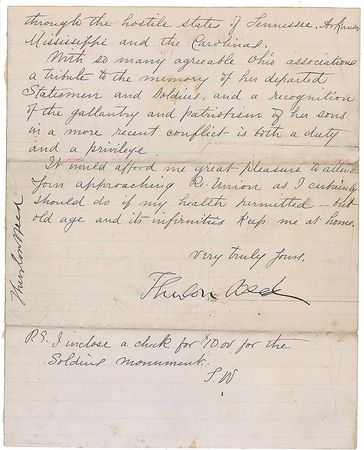 through the hostile states of Tennessee, Arkansas
Mississippi and the Carolinas.
With so many agreeable Ohio associations
a tribute to the memory of her departed
Statesmen and Soldiers, and a recognition
of the gallantry and patriotism of her sons
in a more recent conflict is both a duty
and a privilege.
It would afford me great pleasure to attend
your approaching Re-Union as I certainly
should do if my health permitted – but
old age and its infirmities keep me at home.
Very truly Yours,
Thurlow Weed
P.S. I inclose a check for $10.00 for the
Soldiers monument.
T. W
Thurlow Weed